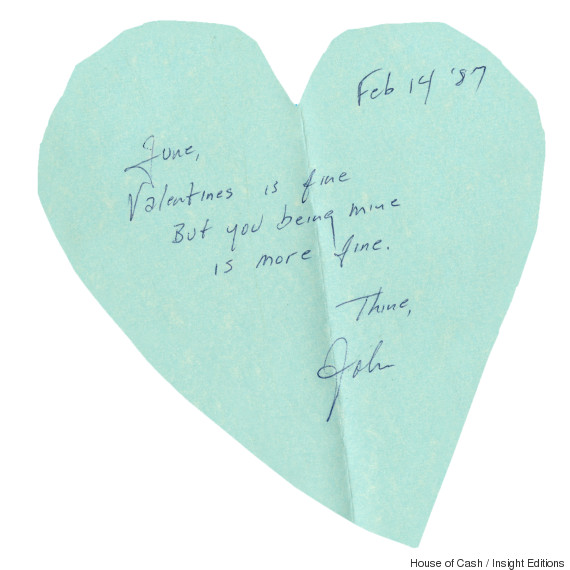 Feb 14 '87
June,
Valentines is fine
But you being mine
is more fine.
Thine,
John
House of Cash / Insight Editions